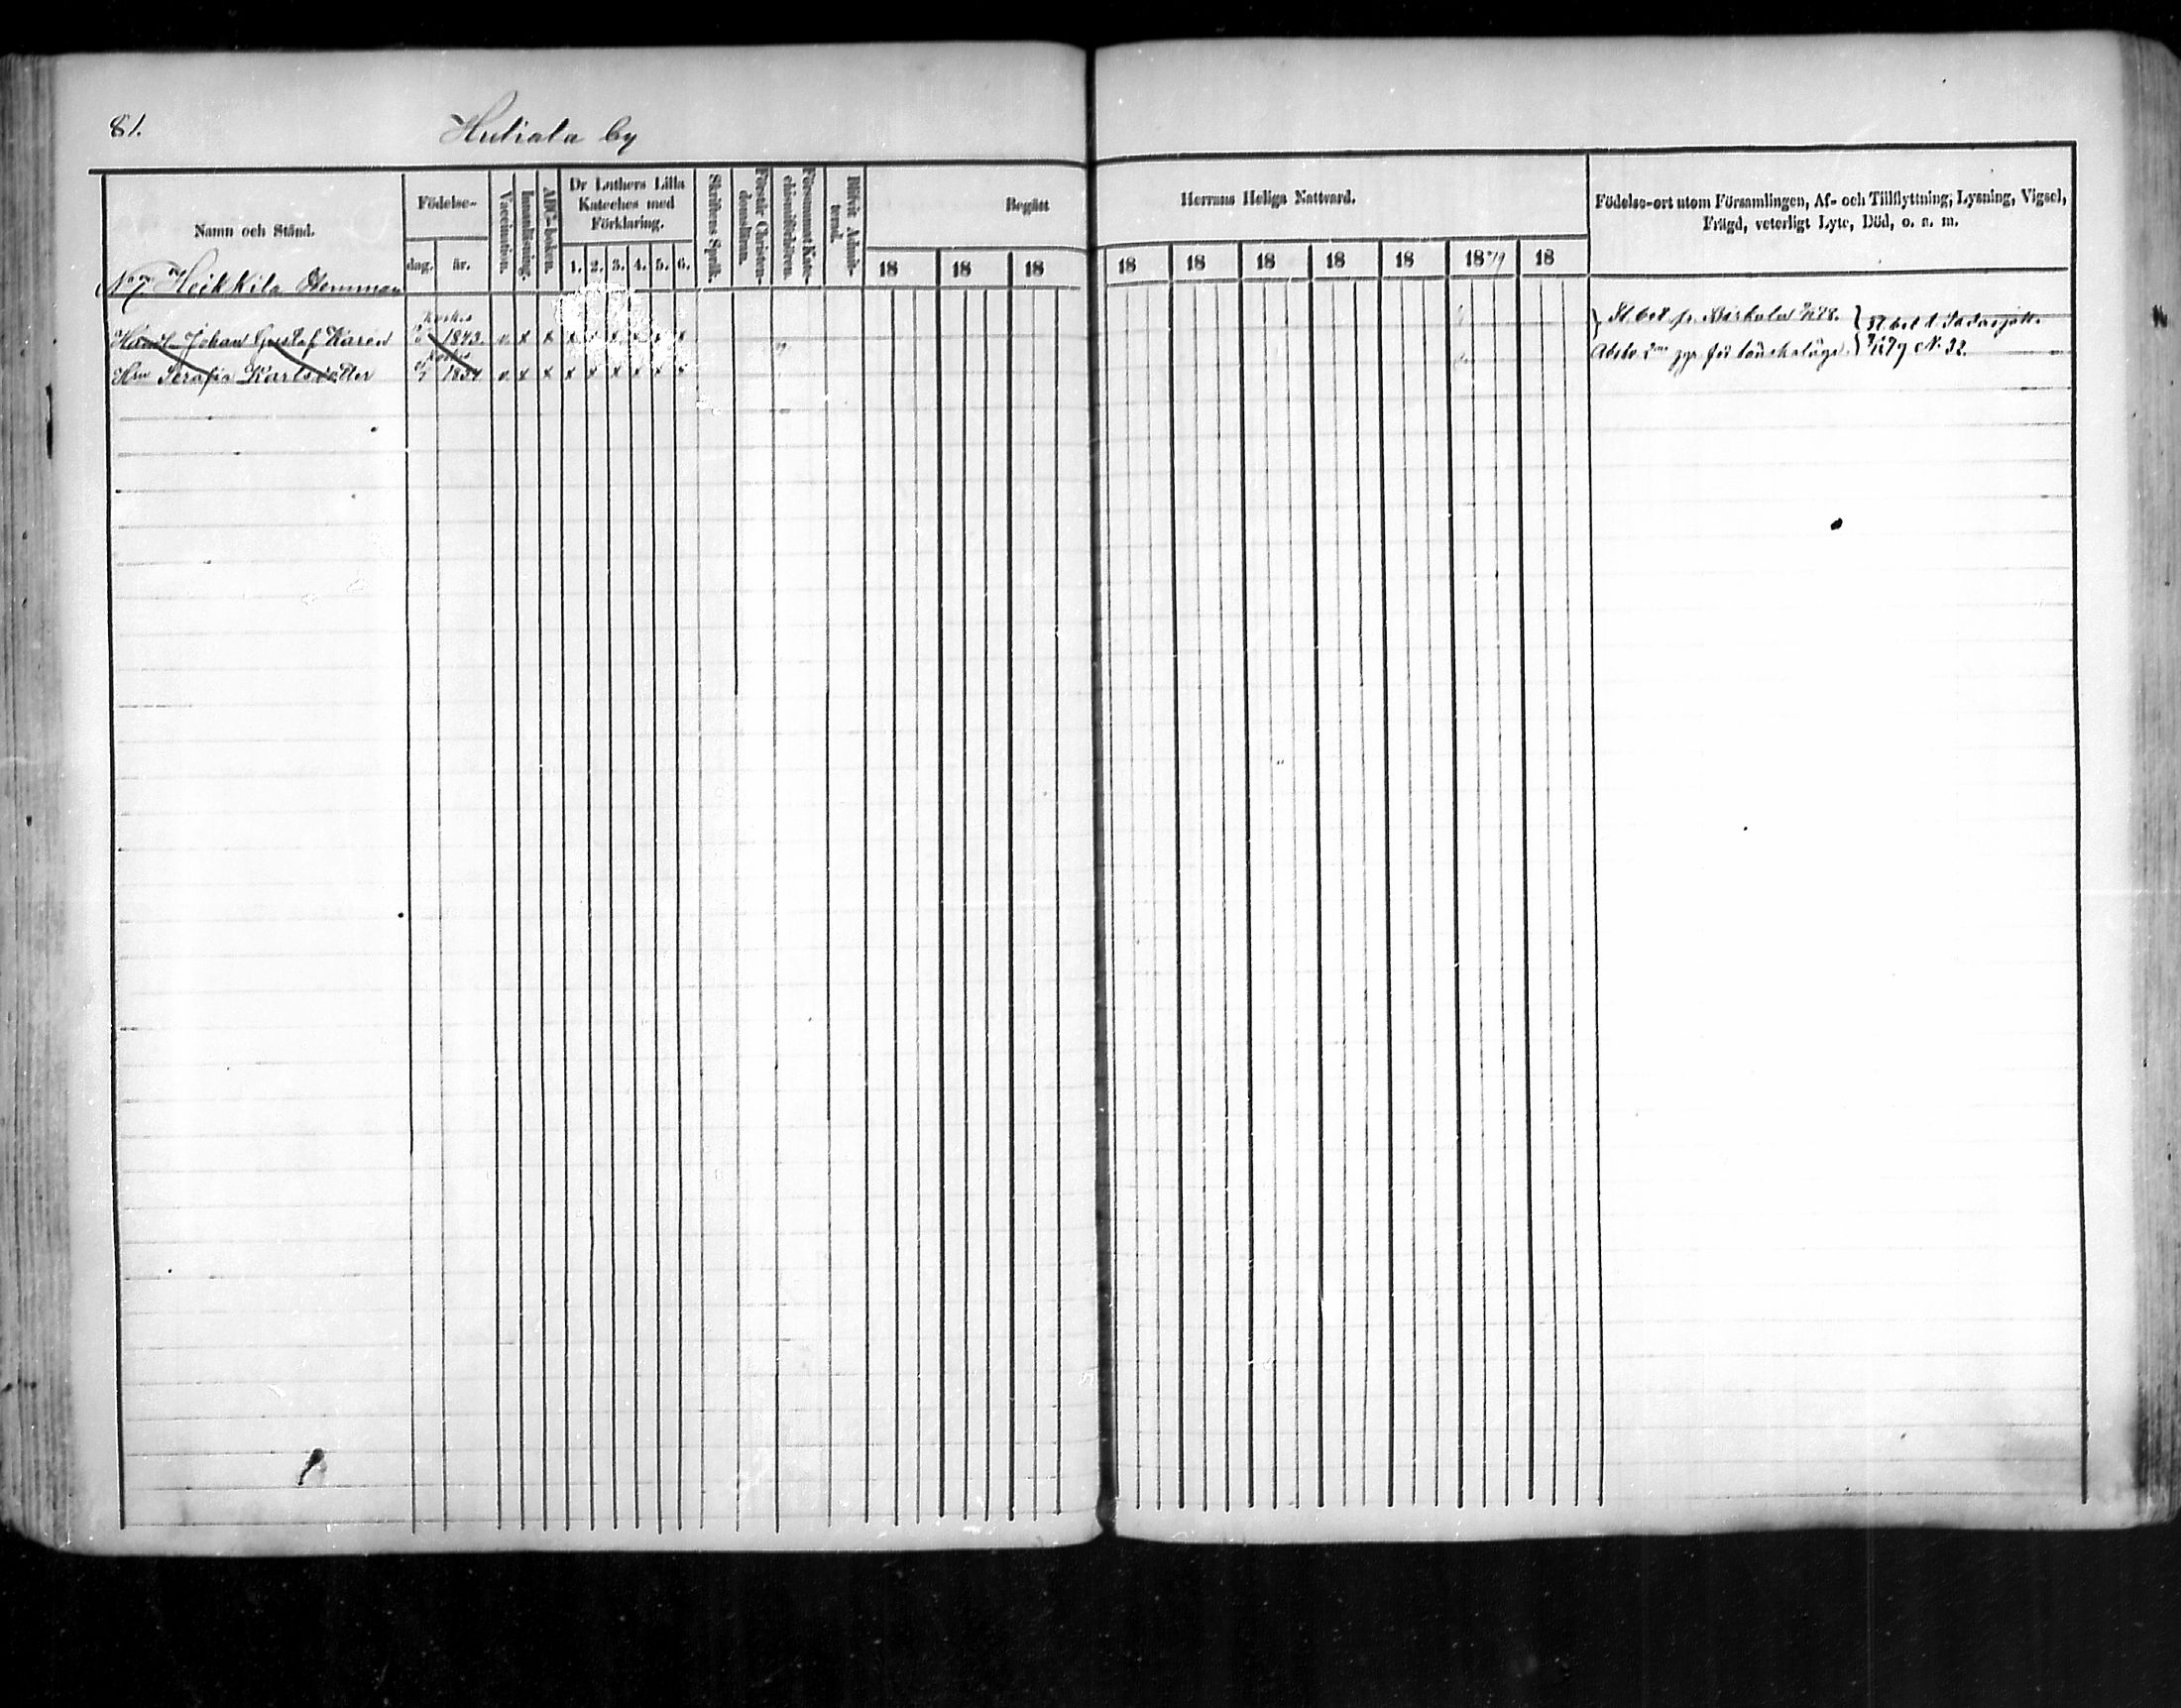 81.
Hutiala by
Namn och Stånd.
Födelse-
dag. år.
Vaccination.
Innanläsning.
ABC-boken.
Dr Luthers Lilla
Kateches med
Förklaring.
1. 2. 3. 4. 5. 6.
Skriftens Språk.
Förstår Christen-
domsläran.
Försummat Kate-
chismiförhören.
Blifvit Admit-
terad.
Begått Herrans Heliga Nattvard.
18 18 18 18 18 18 18 18 1879 18
Födelse-ort utom Församlingen, Af- och Tillflyttning, Lysning, Vigsel,
Frägd, veterligt Lyte, Död, o. s. m.
No 7. Heikkilä Hemman
Johan Gustaf Karén 1843 v x x x x x x x x
Hu Serafia Karlsdotter v x x x x x x x x
Kärkölä
1879 N. 32.